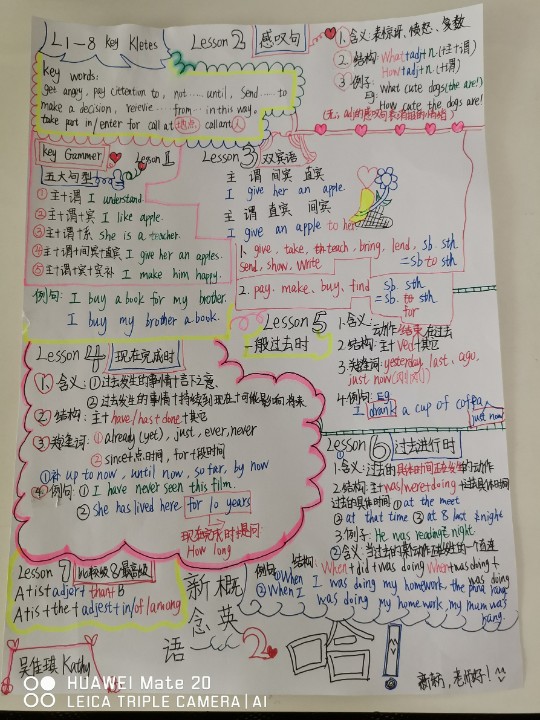 L1-8 Key Kletes
Key words:
get angry, pay cittextion to, not ...... until, send ...... to
make a decision, reveive ...... from ...... in this way,
take part in/enter for call at 地点 callant 人
Lesson 2 感叹句
1. 含义: 表惊讶、愤怒、多数
2. 结构: What+adj+n.(+主+谓)
How+adj+n.(+谓)
3 例子: what cute dogs (the are!)
Eg How cute the dogs are!
Key Gammer Lesson 1
五大句型
①主+谓 I understand.
②主+谓+宾 I like apple.
③主+谓+系 She is a teacher.
④主+谓+间宾+直宾 I give her an apples.
⑤主+谓+宾+宾补 I make him happy.
例句: I buy a book for my brother.
I buy my brother a book.
Lesson 3 双宾语
主 谓 间宾 直宾
I give her an apple.
主 谓 直宾 间宾
I give an apple to her
1. give, take, teach, bring, lend, sb. sth.
send, show, write =sb to sth
2. pay. make. buy、find sb. sth
=sb. to sth
for
Lesson 4 现在完成时
1. 含义: ①过去发生的事情+言下之意.
②过去发生的事情+持续到现在+可能影响将来
② 结构: 主+have/has+done+其它
③ 关键词: ①already (yet), just, ever, never
② since+点时间, for+段时间
①补 up to now, until now, so far, by now
④ 例句: ① I have never seen this film.
② she has lived here for 10 years
现在完成时+提问
How long
Lesson 5
一般过去时
1. 含义:
动作结束在过去
2. 结构: 主+Ved+其它
3. 关键词: yesterday, last, ago,
just now (刚刚)
4. 例句: Eg
I drank a cup of coffea
just now
Lesson 6 过去进行时
1. 含义: 过去的具体时间正在发生的动作
2. 结构: 主+was/were+doing+过去具体时间
过去的具体时间 ① at the meet
② at that time ③ at 8 last night
3 例子: He was reading night.
② 含义: 当过去的某动作正发生的一个追逐
结构: When+did+was doing When+was doing+
was doing
例句: ① When I was doing my homework, the phna rang
② When I was doing my homework, my mum was
rang.
Lesson 7 比较级&最高级
A+ist+adjer+than+B
A+is+the+adjest+in/of/among
新概
念英
语 2
吴佳璇 Kathy
老师好!
HUAWEI Mate 20
LEICA TRIPLE CAMERA | AI